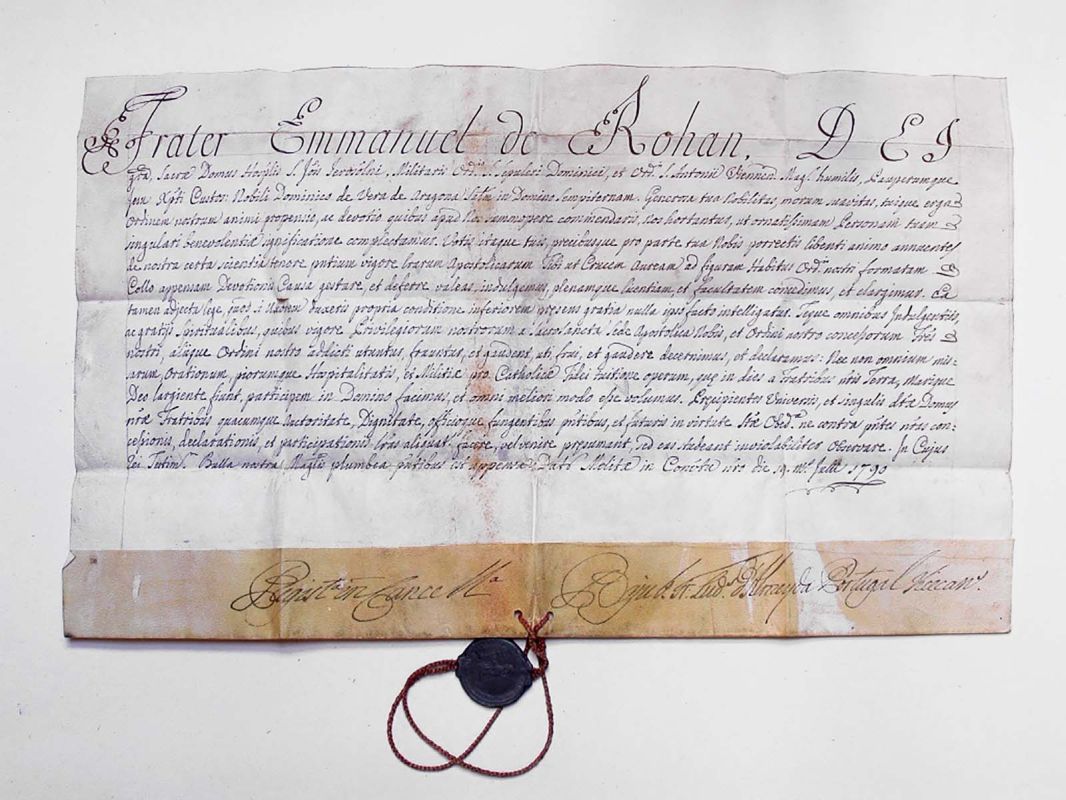 Frater Emmanuel de Rohan, DEI
grã. Sacræ Domus Hosplis S. Jois Militaris Ord. S. Sepulcri Dominici, et Ord. S. Antonii Viennen. Mag. humilis, Pauperumque
Jesu Xpti Custos Nobili Dominico de Vera de Aragona in Domino sempiternam. Generosa tua Nobilitas, morum suavitas, tuique erga
Ordinem nostrum animi propensio, ac devotio quibus apud Nos summopere commendaris, Nos hortantur, ut ornatissimam Personam tuam
singulari benevolentiæ significatione complectamur. Votis itaque tuis, precibusque pro parte tua Nobis porrectis libenti animo annuentes
de nostra certa scientia tenore pntium vigore lrarum Apostolicarum Tibi ut Crucem Auream ad figuram Habitus Ord. nostri formatam
Collo appensam Devotionis Causa gestare, et deferre valeas indulgemus, plenamque licentiam, et facultatem concedimus, et elargimur. Ea
tamen adjecta lege, quod si Uxorem Duxeris propria conditione inferiorem presens gratia nulla ipso facto intelligatur. Teque omnibus Indulgentiis,
ac gratijs Spiritualibus, quibus vigore Privilegiorum nostrorum a Sacrosancta Sede Apostolica Nobis, et Ordini nostro concessorum Fres
nostri, alijque Ordini nostro addicti utuntur, fruuntur, et gaudent, uti, frui, et gaudere decernimus, et declaramus: Nec non omnium mis-
sarum, Orationum, piorumque Hospitalitatis, et Militiæ pro Catholicæ Fidei tuitione operum, quę in dies a Fratribus ntris Terra, Marique
Deo largiente fiunt, participem in Domino facimus, et omni meliori modo esse volumus. Precipientes Universis, et singulis dtæ Domus
nræ Fratribus quacumque Autoritate, Dignitate, officioque fungentibus pntibus, et futuris in virtute Stæ Obed. ne contra pntes ntras con-
cessionis, declarationis, et participationis lras aliquat. facere, vel venire presumant, sed eas studeant inviolabiliter observare. In Cujus
rei Bulla nostra plumbea pntibus est appensa. Dat. Melitæ in Conv. nro die 19. 1790
Regist. in Cancell.a
Almeyda Portugal Vicecan.